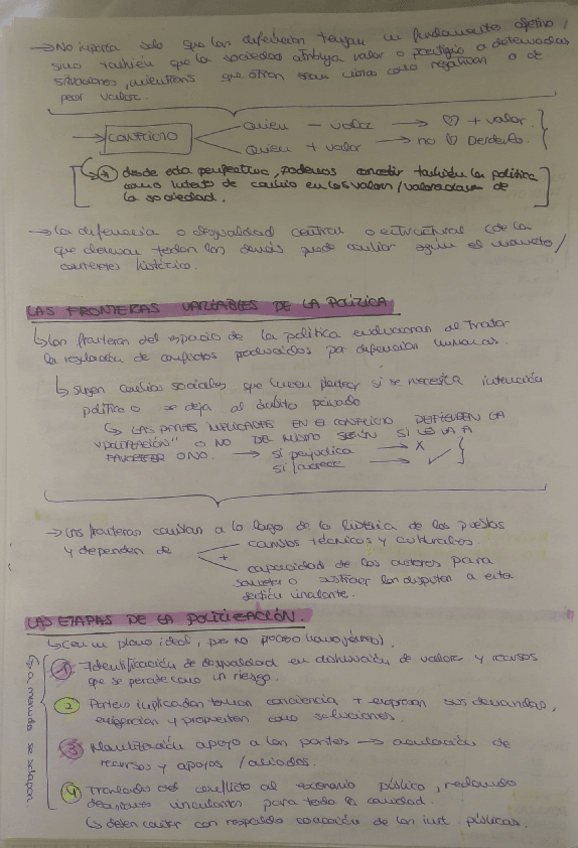 → No importa solo que las diferencias tengan un fundamento objetivo;
sino también que la sociedad atribuya valor o prestigio a determinadas
situaciones, mientras que otras sean vistas como negativas o de
peor valor.
→ CONFLICTO
Quien – valor → ♡ + valor.
Quien + valor → no ♡ Perderlo.
↳ * desde esta perspectiva, podemos concebir también la política
como intento de cambio en los valores/valoraciones de
la sociedad.
→ La diferencia o desigualdad central o estructural (de la
que derivan todas las demás puede cambiar según el momento/
contexto histórico.
LAS FRONTERAS VARIABLES DE LA POLÍTICA
↳ Las fronteras del espacio de la política evolucionan al tratar
la regulación de conflictos producidos por diferencias humanas.
↳ Surgen cambios sociales que hacen plantear si se necesita intervención
política o se deja al ámbito privado
↳ LAS PARTES IMPLICADAS EN EL CONFLICTO DEFIENDEN LA
"POLITIZACIÓN" O NO DEL MISMO SEGÚN SI LE VA A
FAVORECER O NO. → si perjudica → X
si favorece → ✓
→ Las fronteras cambian a lo largo de la historia de los pueblos
y dependen de
cambios técnicos y culturales.
+
capacidad de los actores para
someter o sustraer las disputas a esta
gestión vinculante.
LAS ETAPAS DE LA POLITIZACIÓN.
↳ (en un plano ideal, pues no proceso homogéneo).
1 Identificación de desigualdad en distribución de valores y recursos
que se percibe como un riesgo.
2 Partes implicadas toman conciencia + expresan sus demandas,
exigencias y propuestas como soluciones.
3 Movilización apoyo a las partes → acumulación de
recursos y apoyos / aliados.
4 Traslado del conflicto al escenario público, reclamando
decisiones vinculantes para toda la comunidad.
↳ deben contar con respaldo coacción de las inst. públicas.
↳ a menudo se solapan.